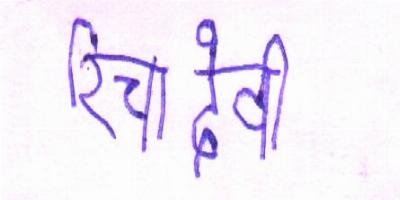 रिचा देवी